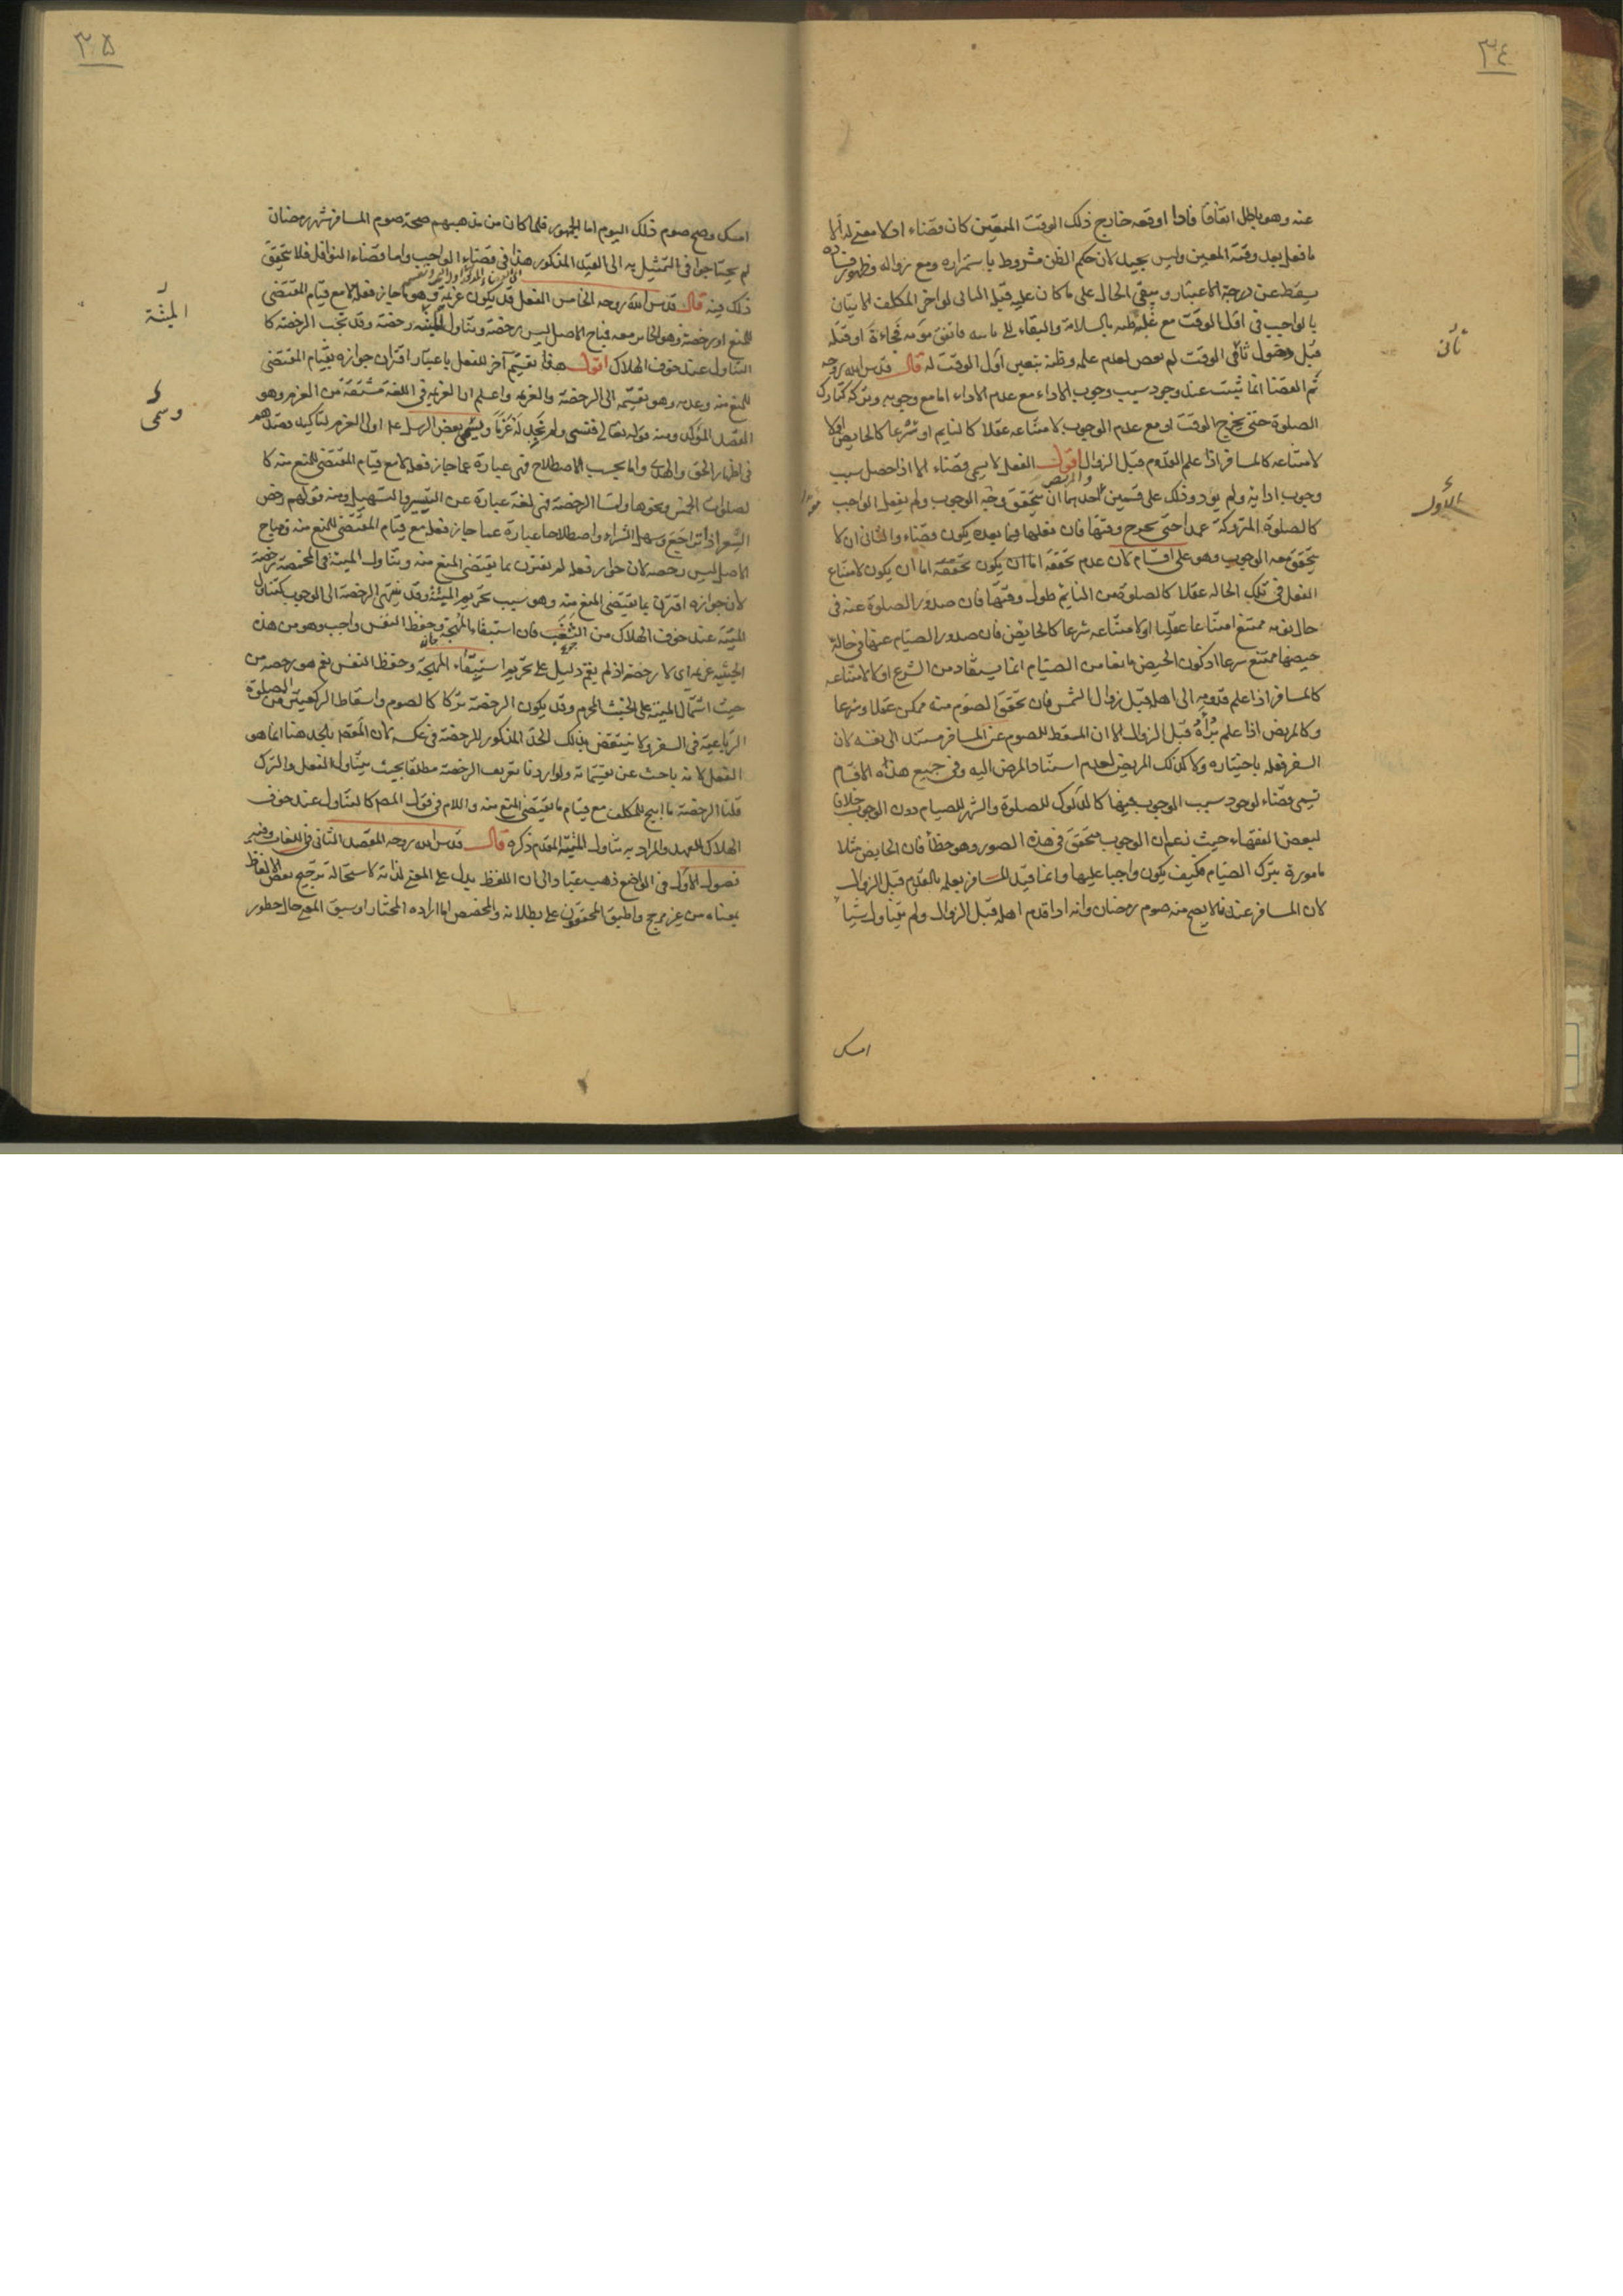 ٣٤
عنه وهو باطل اتفاقا فاذا اوقعه خارج ذلك الوقت المتعين كان قضاء اذ لا معنى له الا
ما فعل بعد وقته المعين وليس بجيد لان حكم الظن مشروط باستمراره ومع زواله وظهور فساده
يسقط عن درجة الاعتبار ويبقى الحال على ما كان عليه قبله الثانى لو اخر المكلف الاتيان
بالواجب فى اول الوقت مع غلبة ظنه بالسلامة والبقاء الى فاتفق موته فجاءة او قتله
قبل دخول ثانى الوقت لم يعص لعدم علمه وظنه بتعين اول الوقت له قال قدس الله روحه
ثم القضا انما يثبت عند وجود سبب وجوب الاداء مع عدم الاداء اما مع وجوبه وتركه كتارك
الصلوة حتى يخرج الوقت او مع عدم الوجوب لامتناعه عقلا كالنايم او شرعا كالحايض او لا
لامتناعه كالمسافر اذا علم القدوم قبل الزوال والمريض اقول الفعل لا يسمى قضاء الا اذا حصل سبب
وجوب ادايه ولم يؤد وذلك على قسمين احدهما ان يتحقق وجه الوجوب ولم يفعل الواجب
كالصلوة المتروكة عمدا حتى يخرج وقتها فان فعلها فيما بعده يكون قضاء والثانى ان لا
يتحقق معه الوجوب وهو على اقسام لان عدم تحققه اما ان يكون تحققه اما ان يكون لامتناع
الفعل فى تلك الحالة عقلا كالصلوة من النايم طول وقتها فان صدور الصلوة عنه فى
حال نومه ممتنع امتناعا عقليا او لامتناعه شرعا كالحايض فان صدور الصيام عنها فى حالة
حيضها ممتنع شرعا اذ كون الحيض مانعا من الصيام انما يستفاد من الشرع او لا لامتناعه
كالمسافر اذا علم قدومه الى اهله قبل زوال الشمس فان تحقق الصوم منه ممكن عقلا وشرعا
وكالمريض اذا علم برأه قبل الزوال الا ان المسقط للصوم عن المسافر مستند الى نفسه لان
السفر فعله باختياره ولا كذلك المريض لعدم استناد المرض اليه وفى جميع هذه الاقسام
تسمى قضاء لوجود سبب الوجوب فيها كالدلوك للصلوة والشهر للصيام دون الوجوب خلافا
لبعض الفقهاء حيث زعم ان الوجوب متحقق فى هذه الصور وهو خطأ فان الحايض مثلا
مامورة بترك الصيام فكيف يكون واجبا عليها وانما قيد المسافر بعلمه بالقدوم قبل الزوال
لان المسافر عندنا لا يصح منه صوم رمضان وانه اذا قدم اهله قبل الزوال ولم يتناول شيأ
امسك
ثانى
الاول
٣٥
امسك وصح صوم ذلك اليوم اما الجمهور فلما كان من مذهبهم صحة صوم المسافر شهر رمضان
لم يحتاجوا فى التمثيل به الى القيد المذكور هذا فى قضاء الواجب واما قضاء النوافل فلا يتحقق
ذلك فيه قال قدس الله روحه الخامس الفعل قد يكون عزيمة وهو ما جاز فعله لا مع قيام المقتضى
للمنع او رخصة وهو الجايز معه فمباح الاصل ليس برخصة وتناول الميتة رخصة وقد تجب الرخصة كا
التناول عند خوف الهلاك اقول هذا تقسيم آخر للفعل باعتبار اقتران جوازه بقيام المقتضى
للمنع منه وعدمه وهو تقسيمه الى الرخصة والعزيمة واعلم ان العزيمة فى اللغة مشتقة من العزم وهو
القصد المؤكد ومنه قوله تعالى فنسى ولم نجد له عزما ويسمى بعض الرسل ع اولى العزم لتاكيد قصدهم
فى اظهار الحق والهدى واما بحسب الاصطلاح فهى عبارة عما جاز فعله لا مع قيام المقتضى للمنع منه كا
لصلوات الخمس ونحوها واما الرخصة فهى لغة عبارة عن التيسير والتسهيل ومنه قولهم رخص
السعر اذا تراجع وسهل الشراء واصطلاحا عبارة عما جاز فعله مع قيام المقتضى للمنع منه فمباح
الاصل ليس رخصة لان جواز فعله لم تقترن بما يقتضى المنع منه وتناول الميتة فى المخمصة رخصة
لان جوازه اقترن بما يقتضى المنع منه وهو سبب تحريم الميتة وقد ينتهى الرخصة الى الوجوب كتناول
الميتة عند خوف الهلاك من السغب فان استبقاء المهجة وحفظ النفس واجب وهو من هذه
الحيثية عزيمة اى لا رخصة اذ لم يقم دليل على تحريم استبقاء المهجة وحفظ النفس نعم هو رخصة من
حيث اشتمال الميتة على الخبث المحرم وقد يكون الرخصة تركا كالصوم واسقاط الركعتين من الصلوة
الرباعية فى السفر ولا ينتقض بذلك الحد المذكور للرخصة فى عكسه لان المقصد بالحد هنا انما هو
الفعل لانه باحث عن تقسيماته ولو اردنا تعريف الرخصة مطلقا بحيث يتناول الفعل والترك
قلنا الرخصة ما ابيح للمكلف مع قيام ما يقتضى المنع منه واللام فى قول المص كالتناول عند خوف
الهلاك للعهد والمراد به تناول الميتة المتقدم ذكره قال قدس الله روحه المقصد الثانى فى اللغات وفيه
فصول الاول فى الواضع ذهب عباد الى ان اللفظ يدل على المعنى لذاته لاستحالة ترجيح بعض الالفاظ
بمعناه من غير مرجح واطبق المحققون على بطلانه والمخصص اما ارادة المختار او سبق المعنى حال خطور
الميتة
وسمى